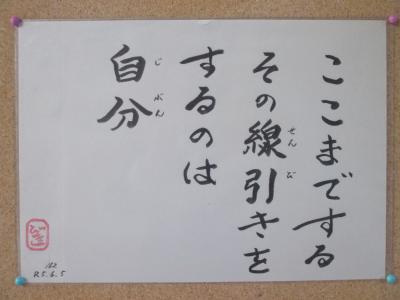 ここまでする
その線引きを
せん び
するのは
自分
じ ぶん
162
R5.6.5